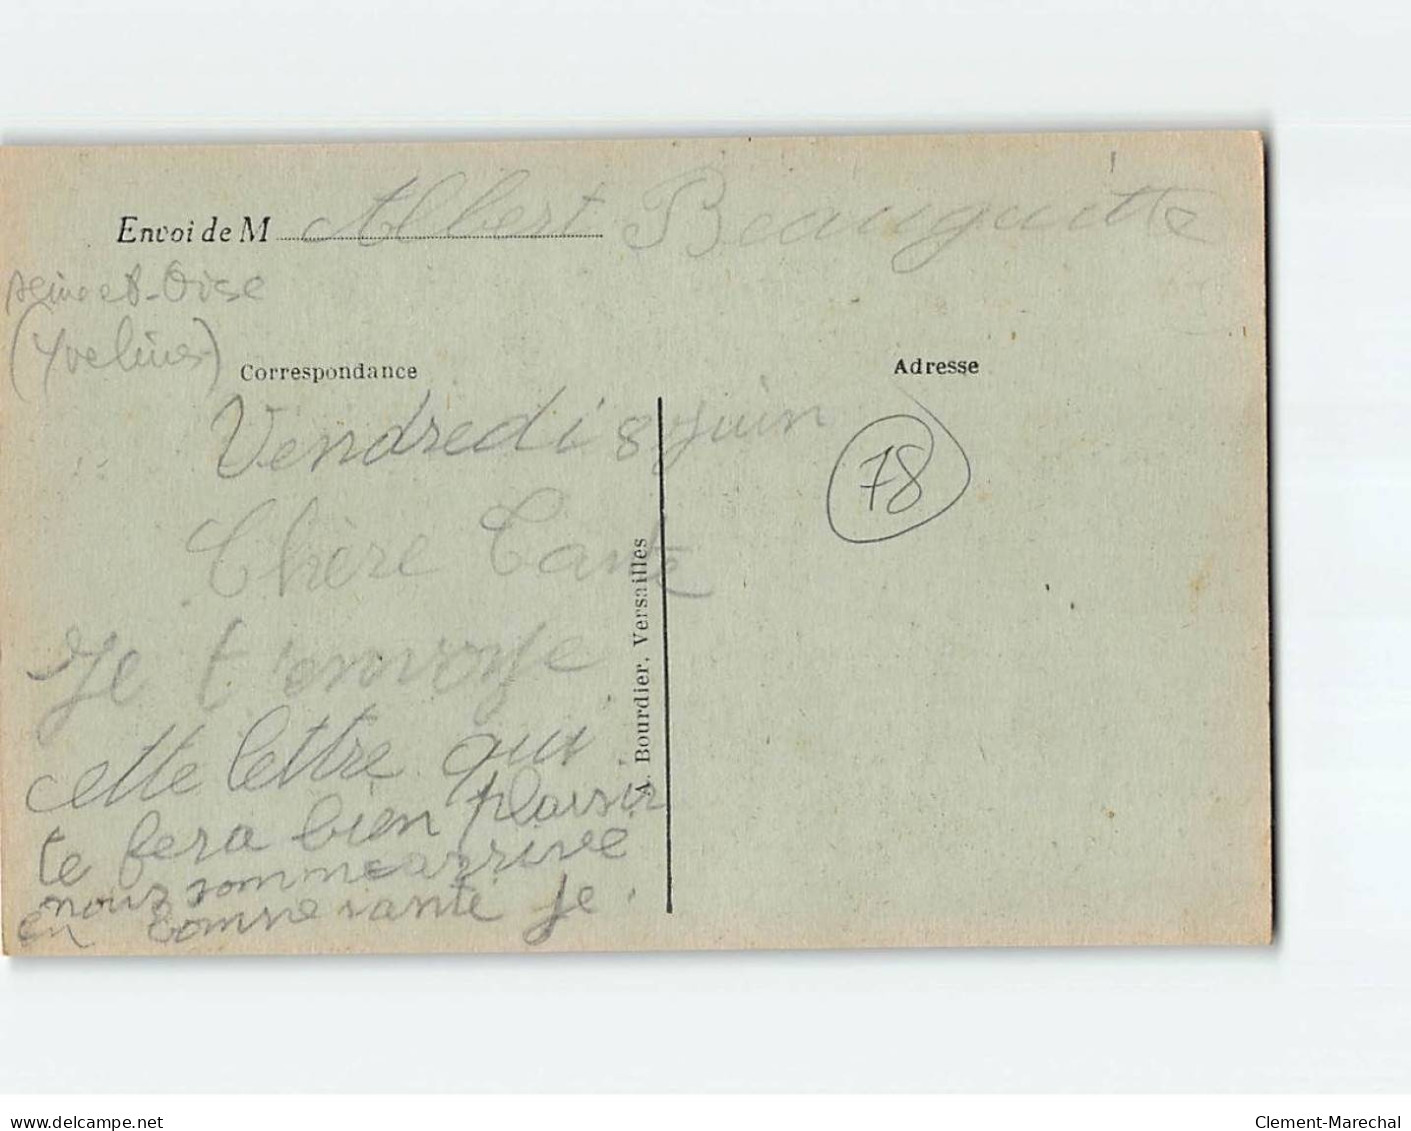 Envoi de M Albert Beauguitte
Seine et-Oise
(Yvelines)
Correspondance
Adresse
Vendredi 8 juin
78
Chère Tante
Je t'envoye
cette lettre qui
te fera bien plaisir
nous somme arrivée
en bonne santé Je
A. Bourdier, Versailles
www.delcampe.net
Clement-Marechal